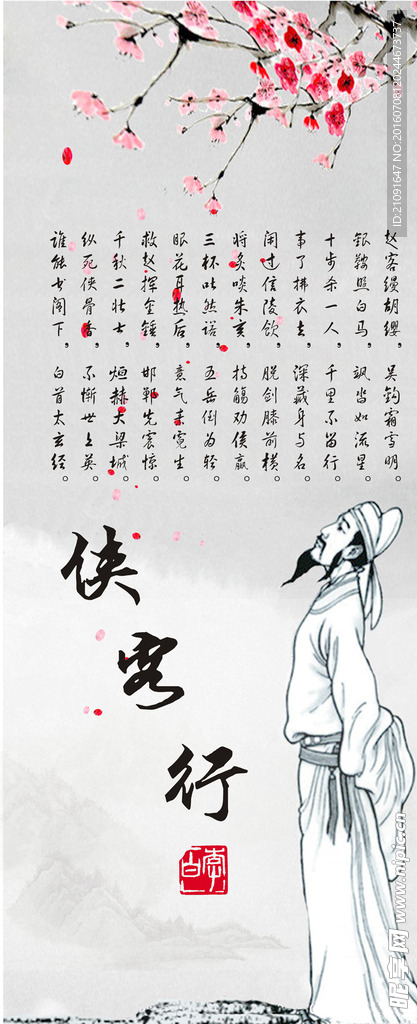 赵客缦胡缨，吴钩霜雪明。
银鞍照白马，飒沓如流星。
十步杀一人，千里不留行。
事了拂衣去，深藏身与名。
闲过信陵饮，脱剑膝前横。
将炙啖朱亥，持觞劝侯嬴。
三杯吐然诺，五岳倒为轻。
眼花耳热后，意气素霓生。
救赵挥金锤，邯郸先震惊。
千秋二壮士，烜赫大梁城。
纵死侠骨香，不惭世上英。
谁能书阁下，白首太玄经。
侠客行
李白
ID:21091647 NO:20160708120244673737
昵享网 www.nipic.cn